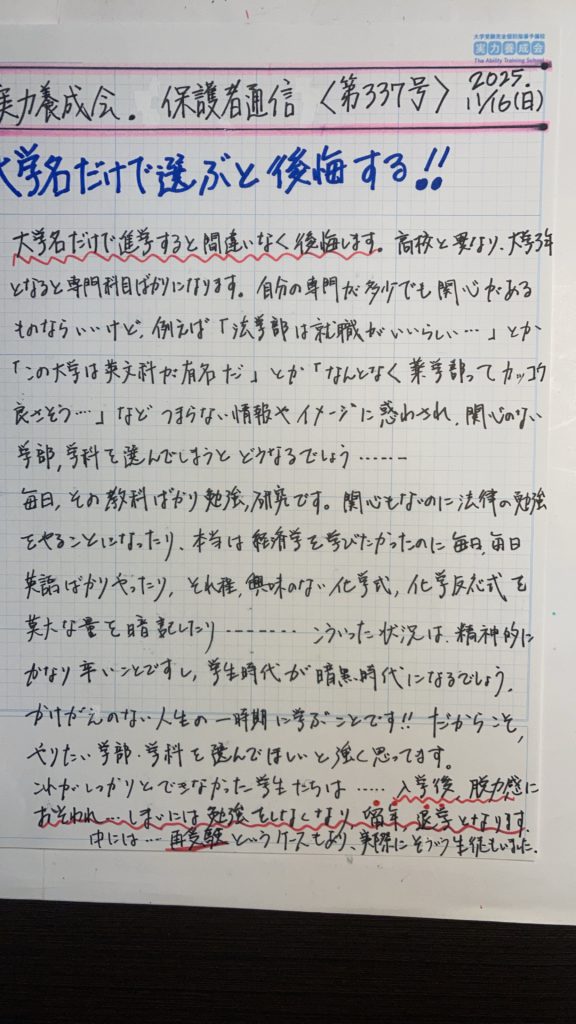 大学受験完全個別指導予備校
実力養成会
The Ability Training School
実力養成会. 保護者通信 〈第337号〉 2025.
11/16(日)
大学名だけで選ぶと後悔する!!
大学名だけで進学すると間違いなく後悔します。高校と異なり、大学3年
となると専門科目ばかりになります。自分の専門が多少でも関心がある
ものならいいけど、例えば「法学部は就職がいいらしい…」とか
「この大学は英文科が有名だ」とか「なんとなく薬学部ってカッコウ
良さそう…」などつまらない情報やイメージに惑わされ、関心のない
学部,学科を選んでしまうとどうなるでしょう……
毎日,その教科ばかり勉強,研究です。関心もないのに法律の勉強
をやることになったり、本当は経済学を学びたかったのに毎日,毎日
英語ばかりやったり,それ程,興味のない化学式,化学反応式を
莫大な量を暗記したり……… こういった状況は、精神的に
かなり辛いことですし,学生時代が暗黒時代になるでしょう。
かけがえのない人生の一時期に学ぶことです!!だからこそ,
やりたい学部・学科を選んでほしいと強く思ってます。
これがしっかりとできなかった学生たちは……入学後,脱力感に
おそわれ…しまいには勉強をしなくなり,留年,退学となります。
中には…再受験というケースもあり、実際にそういう生徒もいました.